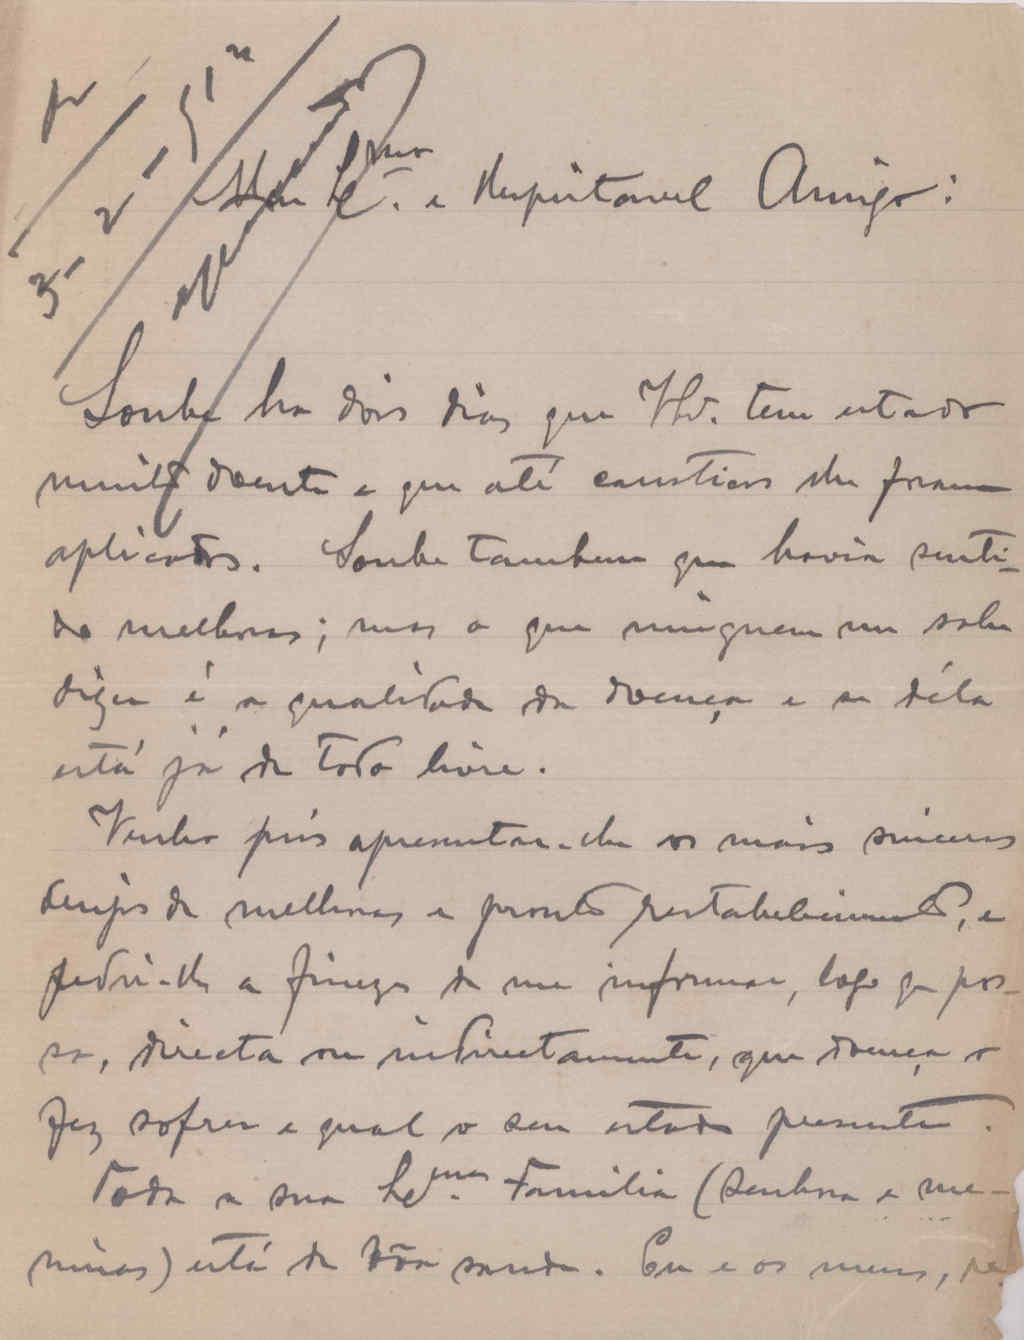 Meu Ex.mo e Respeitavel Amigo:
Soube ha dois dias que V. tem estado
muito doente e que até causticos lhe foram
aplicados. Soube tambem que havia senti-
do melhoras; mas o que ninguem me sabe
dizer é a qualidade da doença e se déla
está já de todo livre.
Venho pois apresentar-lhe os mais sinceros
desejos de melhoras e pronto restabelecimento, e
pedir-lhe a fineza de me informar, logo q pos-
sa, directa ou indirectamente, que doença o
fez sofrer e qual o seu estado presente.
Toda a sua Ex.ma Familia (senhora e me-
ninas) está de bôa saude. Eu e os meus,